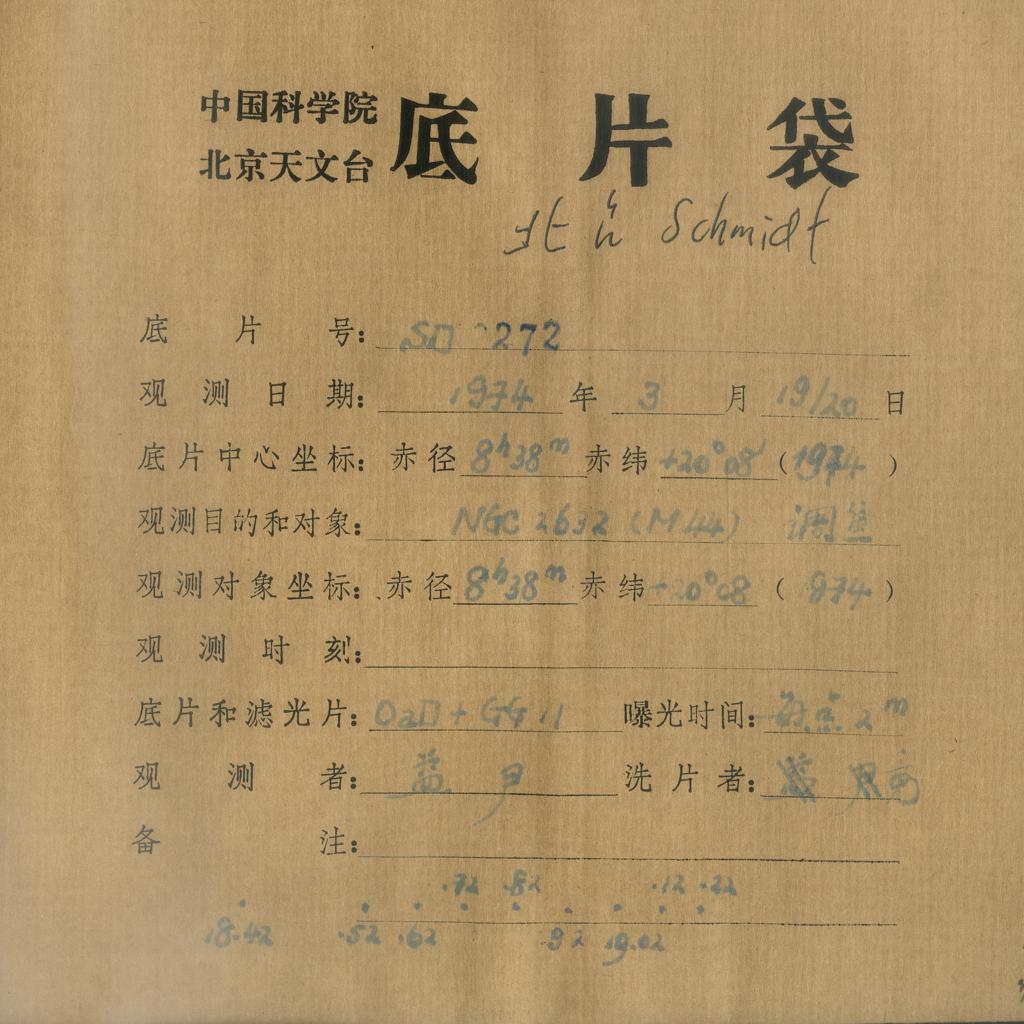 中国科学院
北京天文台 底片袋
北京 Schmidt
底片号: SD 272
观测日期: 1974 年 3 月 19/20 日
底片中心坐标: 赤径 8h38m 赤纬 +20°08' (1974)
观测目的和对象: NGC 2632 (M44) 调焦
观测对象坐标: 赤径 8h38m 赤纬 +20°08 (974)
观测时刻:
底片和滤光片: OaD + GG 11 曝光时间: 每点 2m
观测者: 蓝 尹 洗片者:
备注:
.72 .82 .12 .22
18.42 .52 .62 .92 19.02